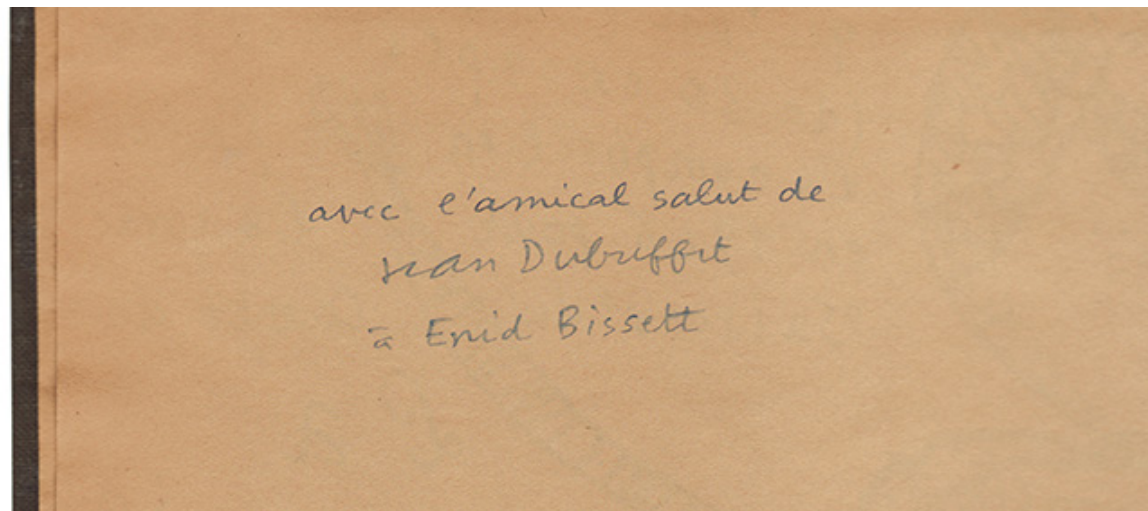 avec l'amical salut de
Jean Dubuffet
à Enid Bissett